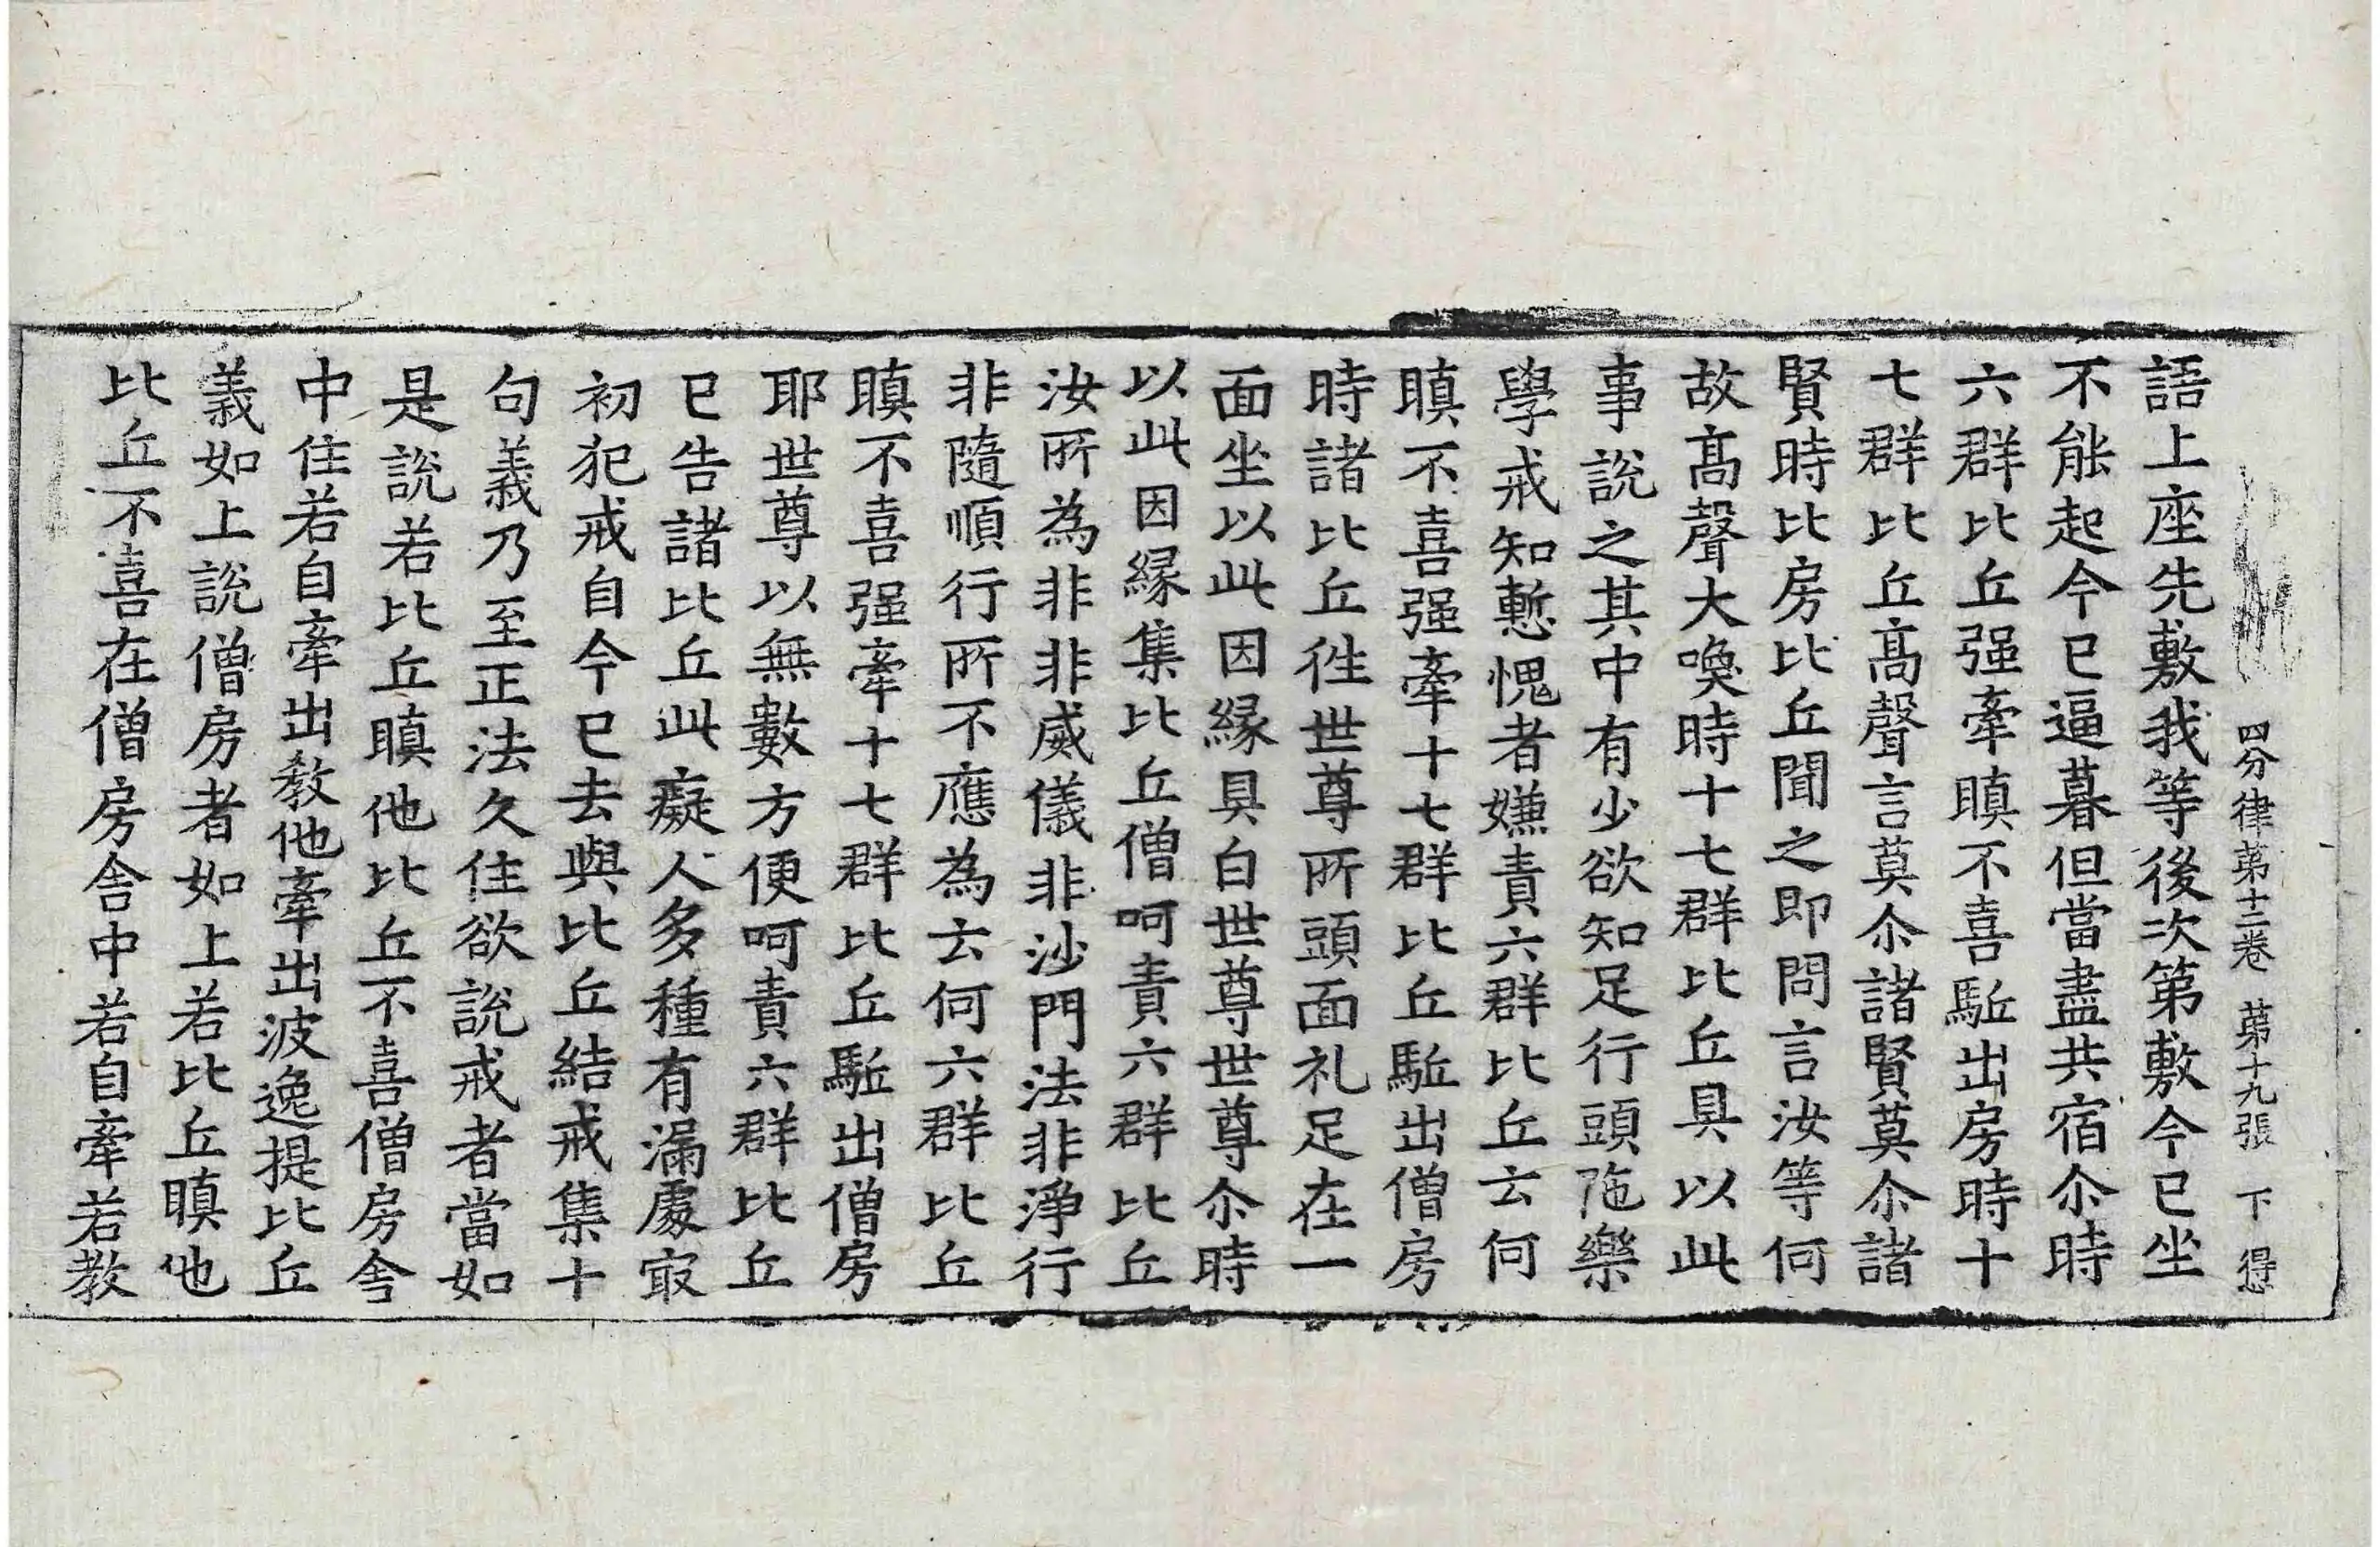 四分律第十二卷 第十九張 下 得
語上座先敷我等後次第敷今已坐
不能起今已逼暮但當盡共宿尒時
六群比丘强牽瞋不喜駈出房時十
七群比丘高聲言莫尒諸賢莫尒諸
賢時比房比丘聞之即問言汝等何
故高聲大喚時十七群比丘具以此
事說之其中有少欲知足行頭陁樂
學戒知慙愧者嫌責六群比丘云何
瞋不喜强牽十七群比丘駈出僧房
時諸比丘徃世尊所頭面礼足在一
面坐以此因縁具白世尊世尊尒時
以此因縁集比丘僧呵責六群比丘
汝所為非非威儀非沙門法非淨行
非隨順行所不應為云何六群比丘
瞋不喜强牽十七群比丘駈出僧房
耶世尊以無數方便呵責六群比丘
已告諸比丘此癡人多種有漏處冣
初犯戒自今已去與比丘結戒集十
句義乃至正法久住欲說戒者當如
是說若比丘瞋他比丘不喜僧房舍
中住若自牽出教他牽出波逸提比丘
義如上說僧房者如上若比丘瞋他
比丘不喜在僧房舍中若自牽若教